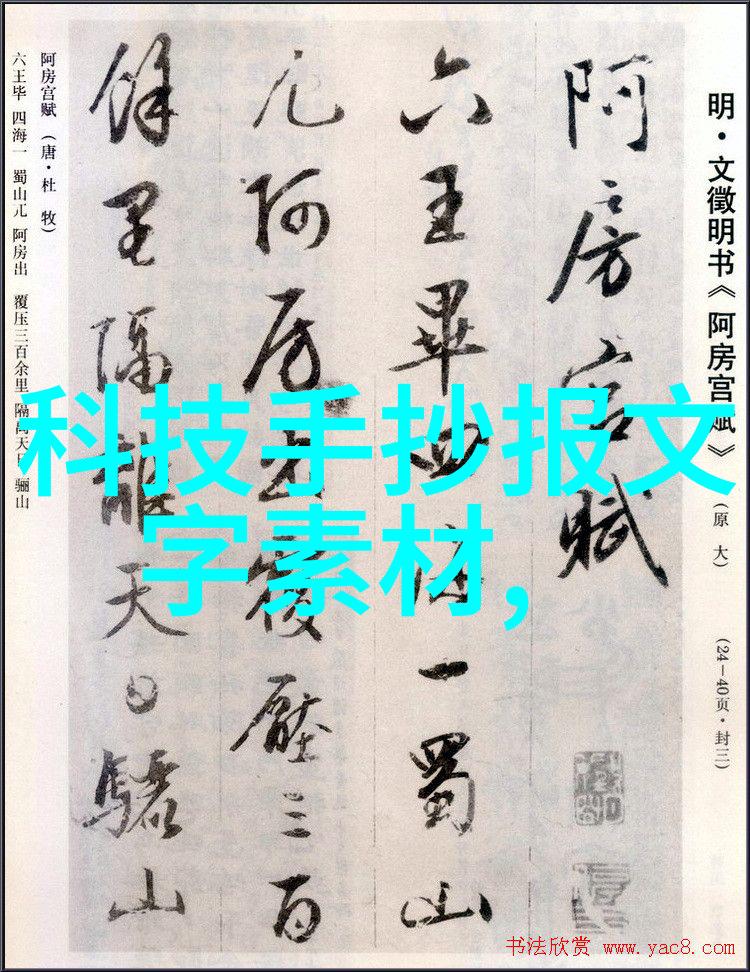 明·文徵明书《阿房宫赋》(原大) (24—40页·封三)
阿房宫赋
六王畢四海一蜀山
兀阿房出覆壓三百
餘里隔離天日驪山
阿房宫赋(唐·杜 牧)
六王毕 四海一 蜀山兀 阿房出 覆压三百余里 隔离天日 骊山
科技手抄报文
字素材,
书法欣赏 www.yac8.com